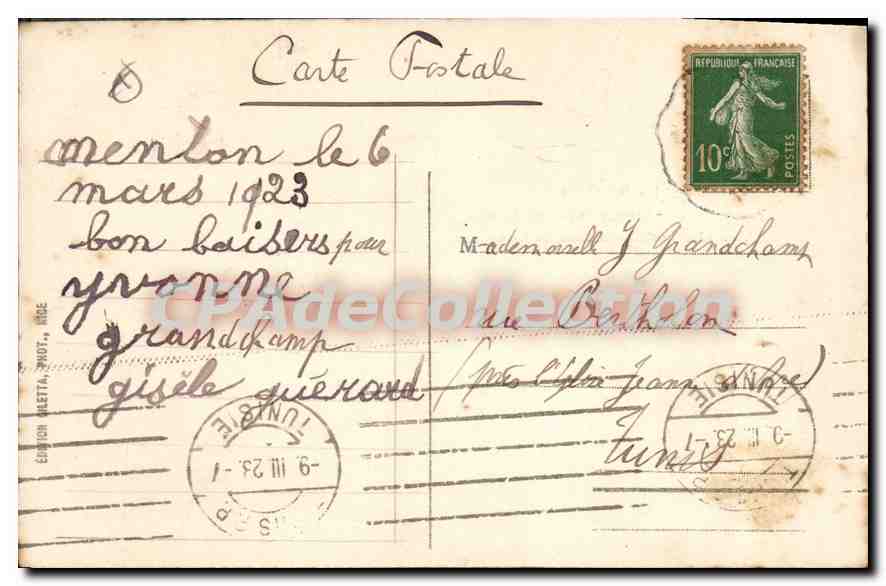 Carte Postale
menton le 6
mars 1923
bon baisers pour
yvonne
grandchamp
gisèle guérard
REPUBLIQUE FRANÇAISE
10c
POSTES
Mademoiselle Y Grandchamp
rue Bertholon
(près l'église Jeanne
Tunis
CPAdeCollection
EDITION GILETTA, PHOT., NICE
TUNISIE
-9 III 23.-7
TUNIS R.P
TUNISIE
-9 III 23.-7